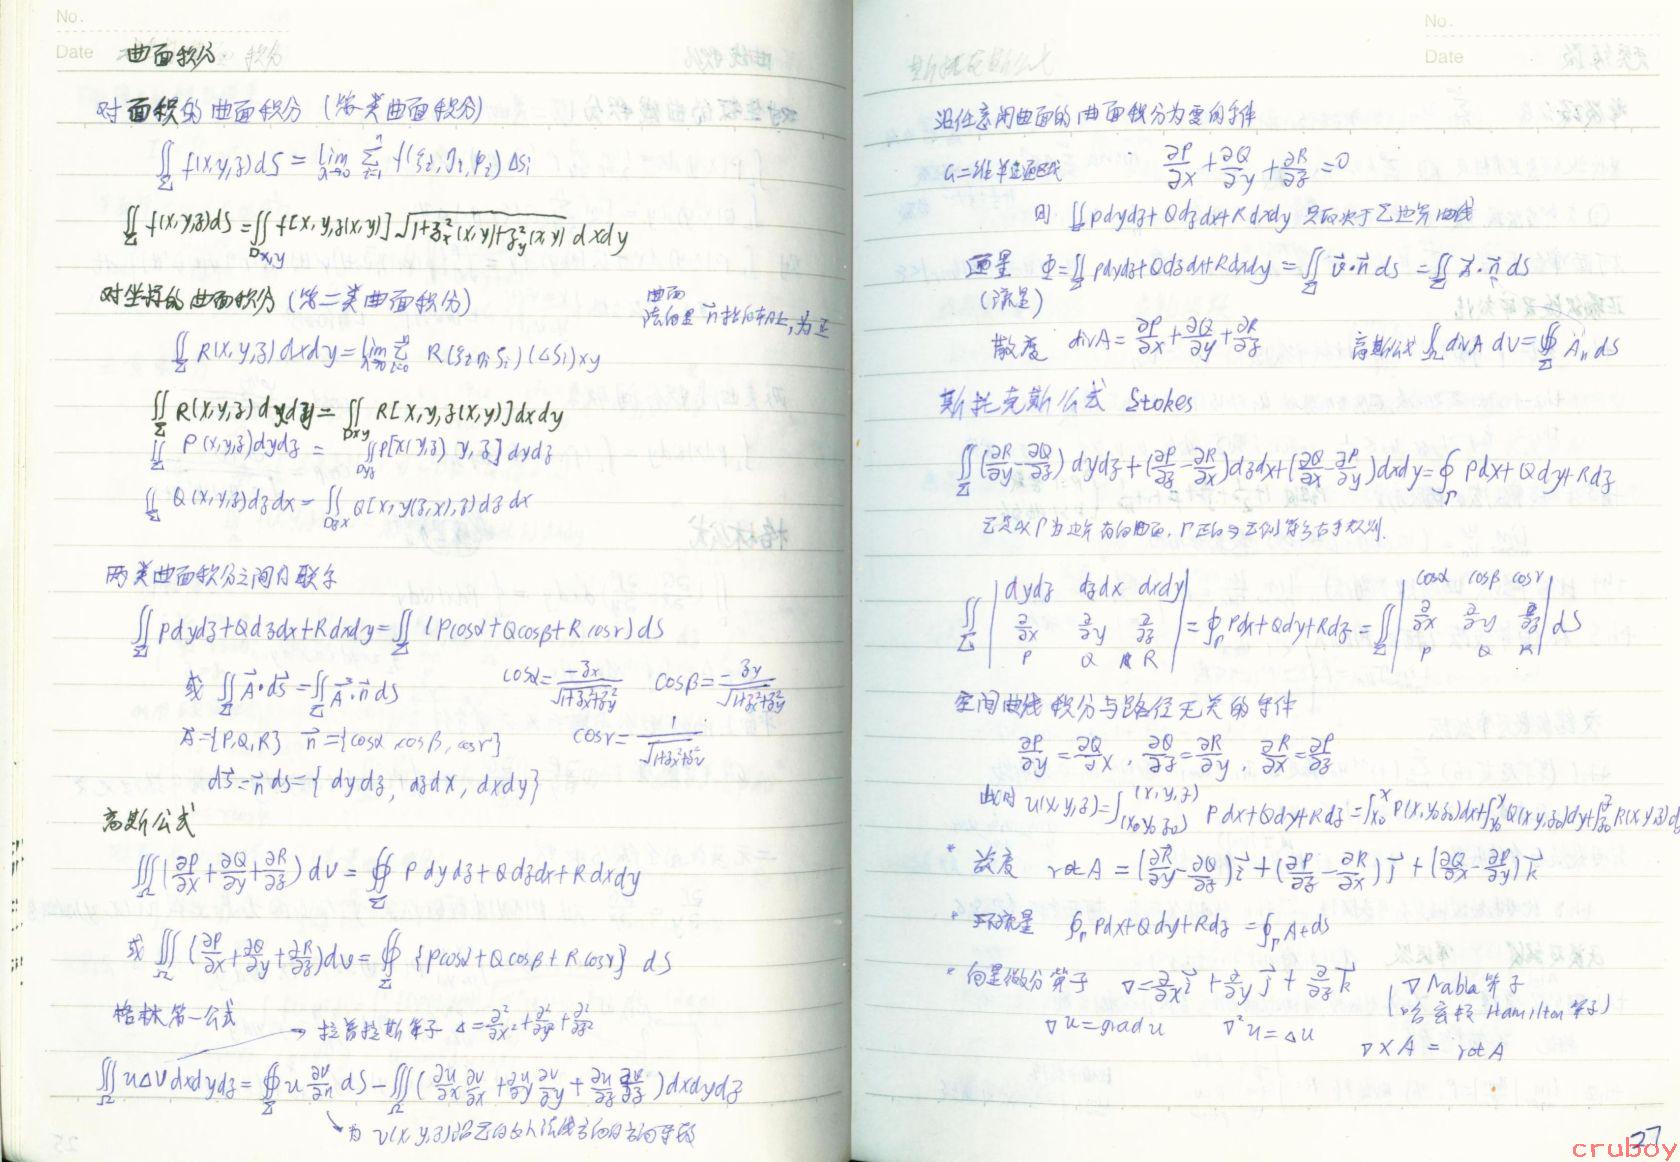 No.
Date
曲面积分
对面积的曲面积分（第一类曲面积分）
∬_Σ f(x,y,z)dS = lim_{λ→0} Σ_{i=1}^{n} f(ξi,ηi,ζi)ΔSi
∬_Σ f(x,y,z)dS = ∬_{Dx,y} f[x,y,z(x,y)]√(1+z_x²(x,y)+z_y²(x,y)) dxdy
对坐标的曲面积分（第二类曲面积分）
曲面
法向量 n⃗ 指向朝上,为正
∬_Σ R(x,y,z)dxdy = lim_{λ→0} Σ_{i=0}^{n} R(ξi ηi ζi)(ΔSi)xy
∬_Σ R(x,y,z)dydz = ∬_{Dxy} R[x,y,z(x,y)]dxdy
∬_Σ P(x,y,z)dydz = ∬_{Dyz} P[x(y,z) y,z]dydz
∬_Σ Q(x,y,z)dzdx = ∬_{Dzx} Q[x,y(z,x),z)dzdx
两类曲面积分之间的联系
∬_Σ Pdydz+Qdzdx+Rdxdy = ∬_Σ (Pcosα+Qcosβ+Rcosγ)dS
或 ∬_Σ A⃗·dS⃗ = ∬_Σ A⃗·n⃗ dS cosα = -z_x/√(1+z_x²+z_y²) cosβ = -z_y/√(1+z_x²+z_y²)
A⃗={P,Q,R} n⃗={cosα,cosβ,cosγ} cosγ = 1/√(1+z_x²+z_y²)
dS⃗=n⃗ds={dydz, dzdx, dxdy}
高斯公式
∭_Ω (∂P/∂x+∂Q/∂y+∂R/∂z)dV = ∯_Σ Pdydz+Qdzdx+Rdxdy
或 ∭_Ω (∂P/∂x+∂Q/∂y+∂R/∂z)dv = ∯_Σ {Pcosα+Qcosβ+Rcosγ} dS
格林第一公式
→ 拉普拉斯算子 Δ=∂²/∂x²+∂²/∂y²+∂²/∂z²
∭_Ω uΔVdxdydz = ∯_Σ u ∂v/∂n dS - ∭_Ω (∂u/∂x ∂v/∂x + ∂u/∂y ∂v/∂y + ∂u/∂z ∂v/∂z)dxdydz
为 v(x,y,z)沿Σ的外法线方向的方向导数
No.
Date
沿任意闭曲面的曲面积分为零的条件
G二维单连通区域 ∂P/∂x+∂Q/∂y+∂R/∂z=0
则 ∬_Σ Pdydz+Qdzdx+Rdxdy 只取决于Σ边界曲线
通量 Φ=∬_Σ Pdydz+Qdzdx+Rdxdy = ∬_Σ v⃗·n⃗ ds = ∬_Σ A⃗·n⃗ dS
(流量)
散度 divA = ∂P/∂x+∂Q/∂y+∂R/∂z 高斯公式 ∫_Ω divA dV = ∯_Σ An dS
斯托克斯公式 Stokes
∬_Σ (∂R/∂y-∂Q/∂z)dydz+(∂P/∂z-∂R/∂x)dzdx+(∂Q/∂x-∂P/∂y)dxdy = ∮_Γ Pdx+Qdy+Rdz
Σ是以Γ为边界的曲面,Γ正向与Σ侧符合右手规则.
∬_Σ | dydz dzdx dxdy ; ∂/∂x ∂/∂y ∂/∂z ; P Q R | = ∮_Γ Pdx+Qdy+Rdz = ∬_Σ | cosα cosβ cosγ ; ∂/∂x ∂/∂y ∂/∂z ; P Q R | dS
空间曲线积分与路径无关的条件
∂P/∂y=∂Q/∂x, ∂Q/∂z=∂R/∂y, ∂R/∂x=∂P/∂z
此时 u(x,y,z)=∫_{(x0 y0 z0)}^{(x,y,z)} Pdx+Qdy+Rdz = ∫_{x0}^{x} P(x,y0 z0)dx+∫_{y0}^{y} Q(x y,z0)dy+∫_{z0}^{z} R(x,y,z)d
* 旋度 rotA = (∂R/∂y-∂Q/∂z)i⃗+(∂P/∂z-∂R/∂x)j⃗+(∂Q/∂x-∂P/∂y)k⃗
* 环流量 ∮_Γ Pdx+Qdy+Rdz = ∮_Γ At ds
* 向量微分算子 ∇=∂/∂x i⃗+∂/∂y j⃗+∂/∂z k⃗ (∇ Nabla算子
∇u=grad u ∇²u=Δu 哈密顿 Hamilton算子)
∇×A = rotA
27
cruboy